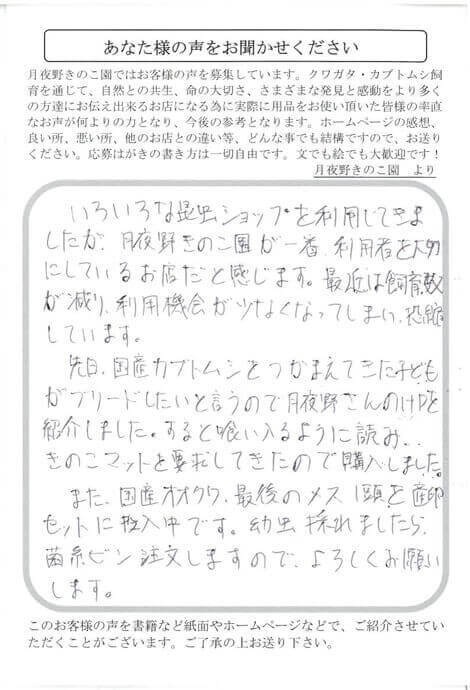 あなた様の声をお聞かせください
月夜野きのこ園ではお客様の声を募集しています。クワガタ・カブトムシ飼
育を通じて、自然との共生、命の大切さ、さまざまな発見と感動をより多く
の方達にお伝え出来るお店になる為に実際に用品をお使い頂いた皆様の率直
なお声が何よりの力となり、今後の参考となります。ホームページの感想、
良い所、悪い所、他のお店との違い等、どんな事でも結構ですので、お送り
ください。応募はがきの書き方は一切自由です。文でも絵でも大歓迎です！
月夜野きのこ園　より
いろいろな昆虫ショップを利用してきま
したが、月夜野きのこ園が一番、利用者を大切
にしているお店だと感じます。最近は飼育数
が減り、利用機会が少なくなってしまい、恐縮
しています。
先日、国産カブトムシをつかまえてきた子ども
がブリードしたいと言うので月夜野さんのHPを
紹介しました。すると喰い入るように読み、
きのこマットを要求してきたので購入しました。
また、国産オオクワ、最後のメス1頭を産卵
セットに投入中です。幼虫採れましたら、
菌糸ビン注文しますので、よろしくお願い
します。
このお客様の声を書籍など紙面やホームページなどで、ご紹介させてい
ただくことがございます。ご了承の上お送り下さい。